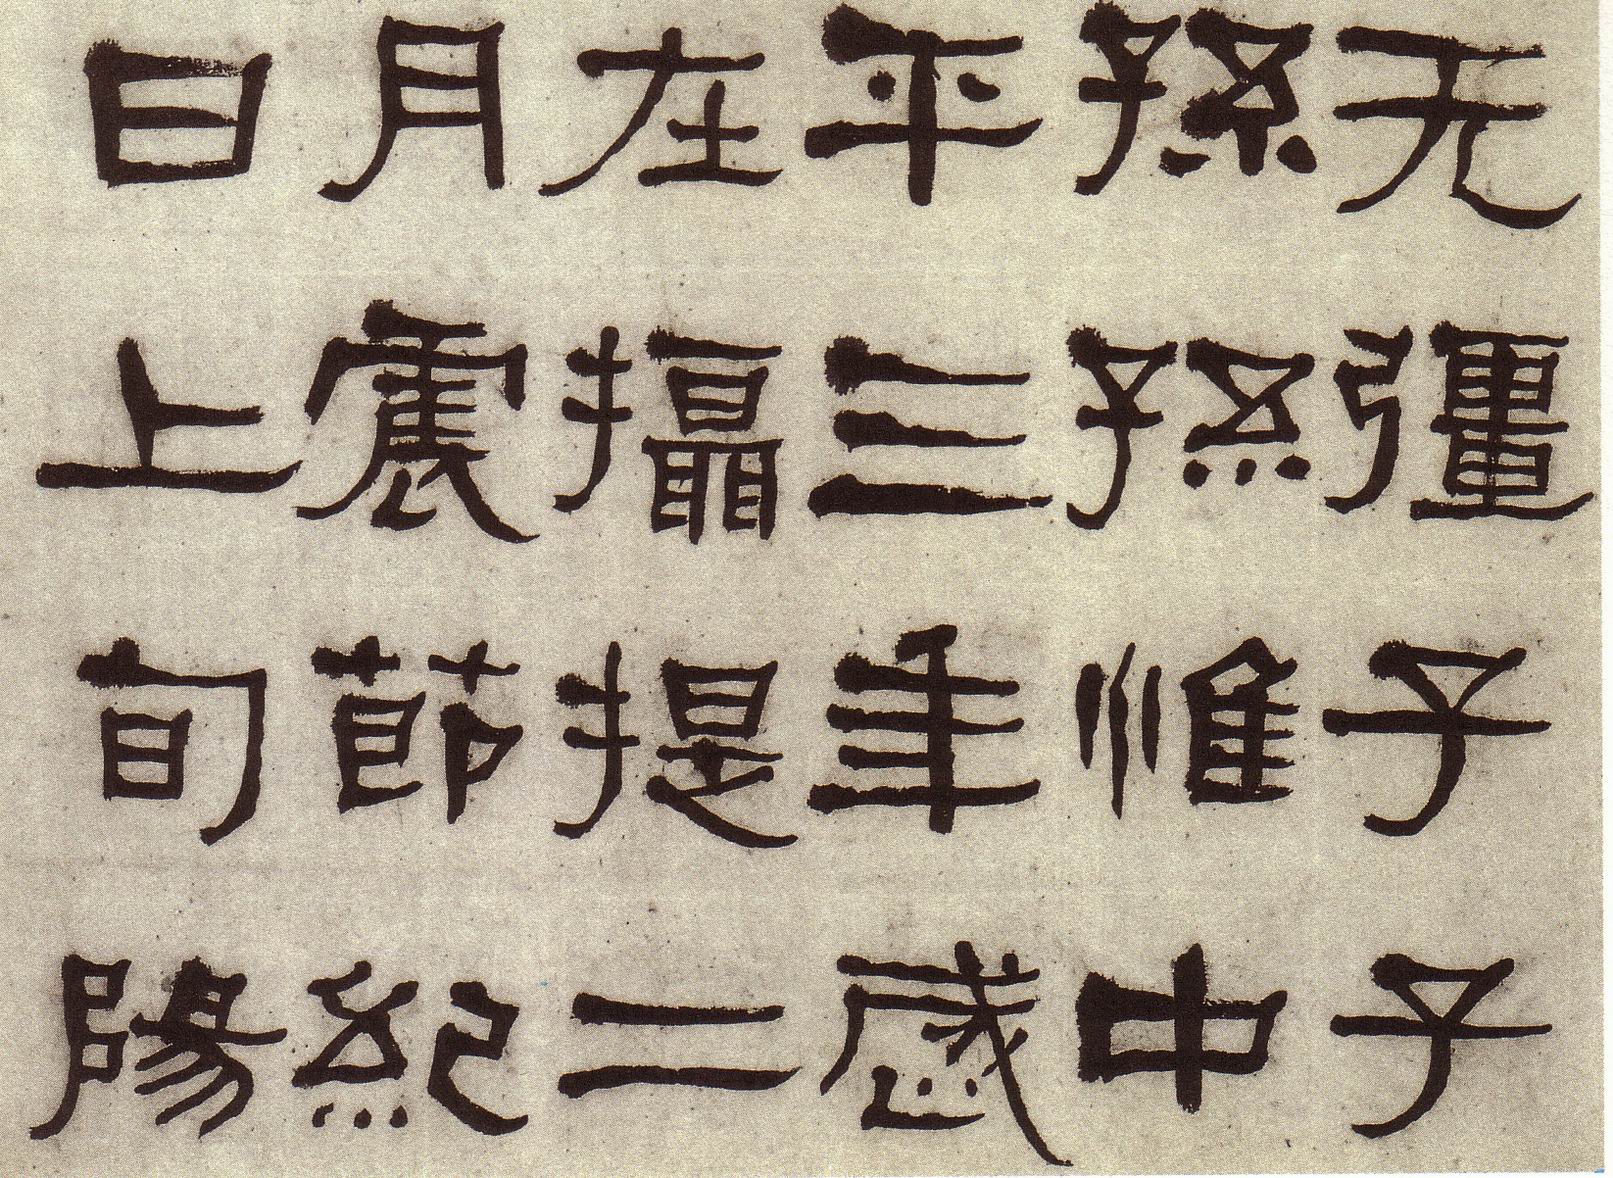 无彊子子
孫孫惟中
平三年歲
在攝提二
月震節紀
日上旬陽